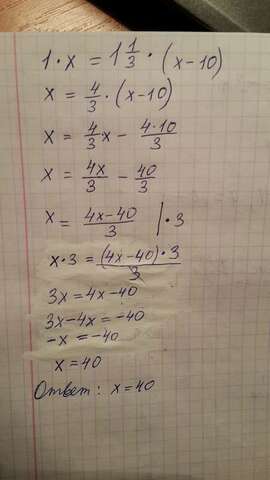 1·x = 1 1/3 · (x-10)
x = 4/3 · (x-10)
x = 4/3 x - 4·10/3
x = 4x/3 - 40/3
x = 4x-40/3 | ·3
x·3 = (4x-40)·3/3
3x = 4x-40
3x-4x = -40
-x = -40
x = 40
Ответ: x = 40